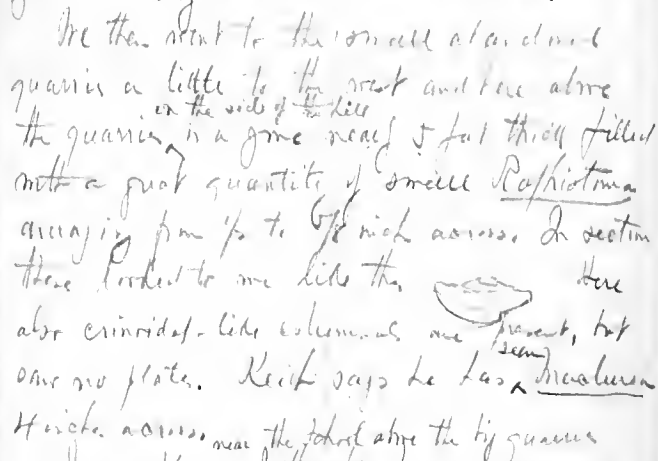 We then went to the small abandoned
quarries a little to the west and here above
in the side of the hill
the quarries is a zone nearly 5 feet thick filled
with a great quantity of small Raphistoma
averaging from to 6/8 inch across. In section
these looked to me like this Here
also crinoidal-like columnals are present, but
seen
saw no plates. Keith says he has Maclurea
4 inches across near the school above the big quarries